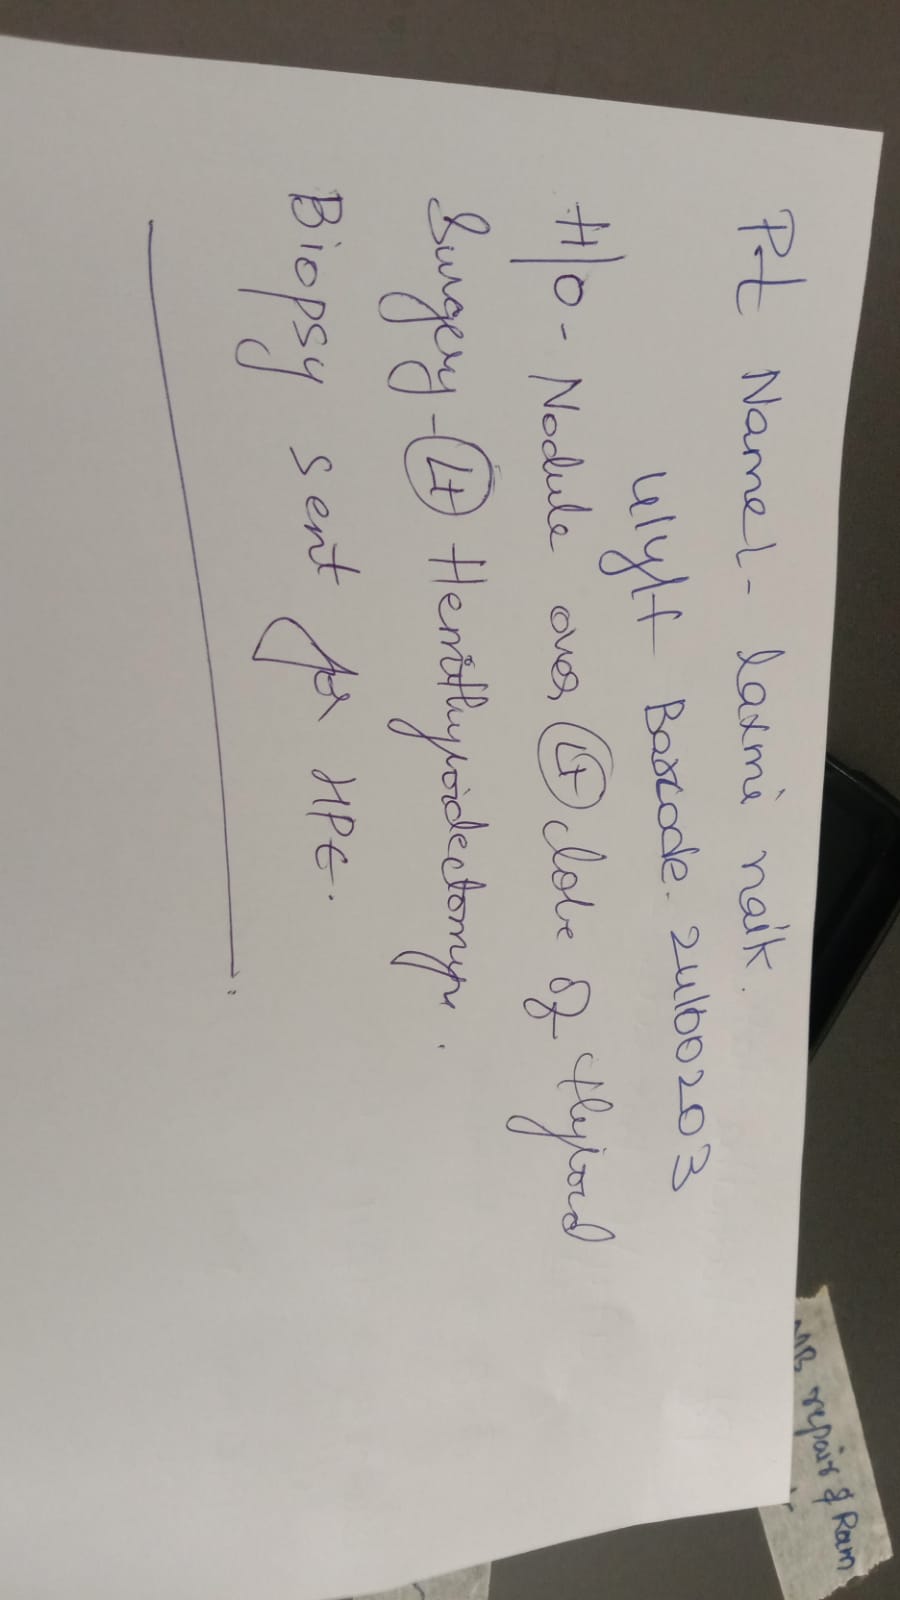 Pt Name:- laxmi naik.
41y/f Barcode. 24100203
H/o - Nodule over Lt lobe of thyroid
Surgery - Lt Hemithyroidectomy.
Biopsy sent for HPE.
MB repair & Ram